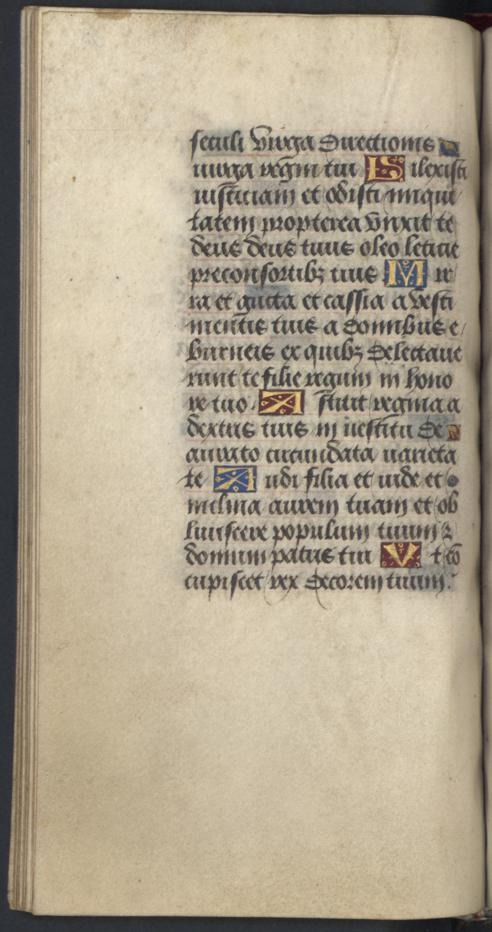 seculi virga directionis
uirga regni tui Dilexisti
iusticiam et odisti iniqui
tatem propterea vnxit te
deus deus tuus oleo leticie
preconsortibꝫ tuis Mir
ra et gutta et cassia a vesti
mentis tuis a domibus e
burneis ex quibꝫ delectaue
runt te filie regum in hono
re tuo Astitit regina a
dextris tuis in uestitu de
aurato circundata uarieta
te Audi filia et uide et
inclina aurem tuam et ob
liuiscere populum tuum ⁊
domum patris tui Et cō
cupiscet rex decorem tuum